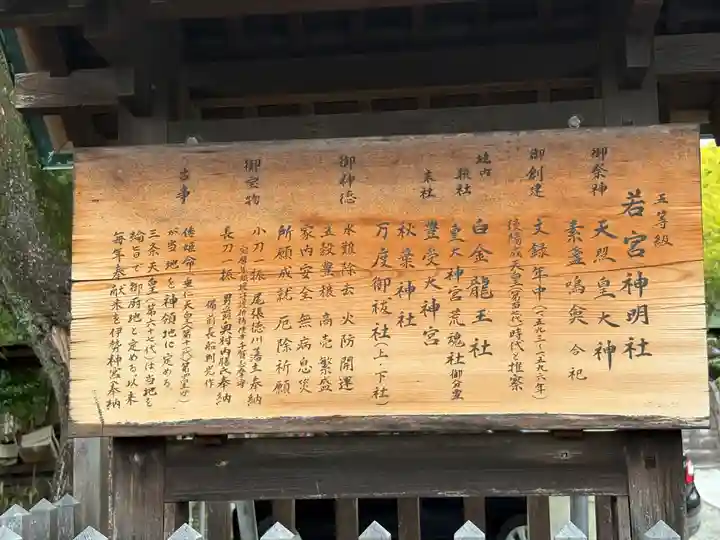 五等級
若宮神明社
御祭神
天照皇大神
素盞嗚尊 合祀
御創建
文録年中(一五九三~一五九六年)
後陽成天皇(第百七代)時代と推察
境内
白金龍王社
皇大神宮荒魂社 御分霊
末社
豊受大神宮
秋葉神社
万度御祓社(上・下社)
御神徳
水難除去 火防開運
五穀豊穣 商売繁盛
家内安全 無病息災
所願成就 厄除祈願
御宝物
小刀一振 尾張徳川藩主奉納
長刀一振 奥村内膳氏奉納
備前長船則光作
古事
倭姫命
が当地を神領地に定める。
三条天皇(第六十七代)は当地を
綸旨で御厨地と定める。以来
毎年奉献米を伊勢神宮奉納